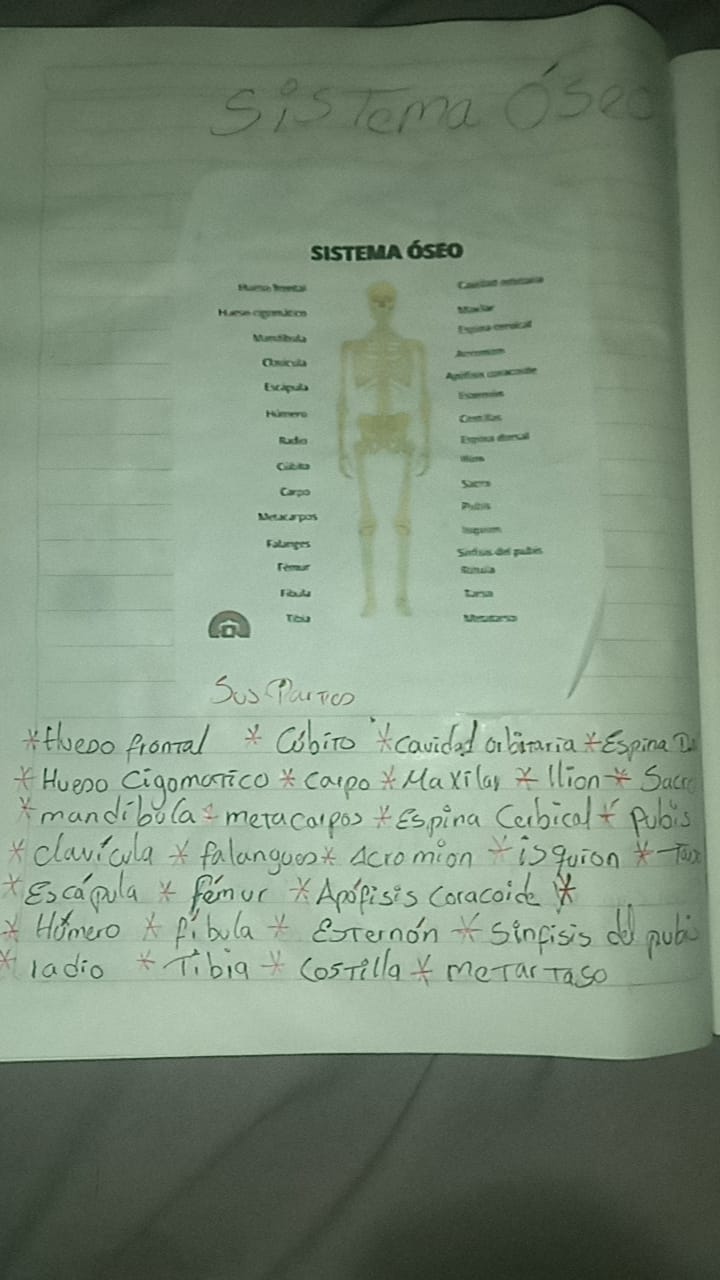 Sistema Óseo
SISTEMA ÓSEO
Hueso frontal
Hueso cigomático
Mandíbula
Clavícula
Escápula
Húmero
Radio
Cúbito
Carpo
Metacarpos
Falanges
Fémur
Fíbula
Tibia
Maxilar
Espina cervical
Acromion
Apófisis coracoide
Esternón
Costillas
Espina dorsal
Ilion
Sacro
Pubis
Isquion
Sínfisis del pubis
Rótula
Tarso
Metatarso
Sus Partes
*Hueso frontal * Cúbito *cavidad orbitaria *Espina D
*Hueso Cigomatico * Carpo *Maxilar * Ilion * Sacro
*mandíbula * metacarpos *Espina Cerbical * pubis
*clavícula * falangues * Acromion * isquion *
*Escápula * fémur *Apófisis Coracoide *
* Húmero * fíbula * Esternón * Sinfisis del pubi
* radio * Tibia * Costilla * metartaso